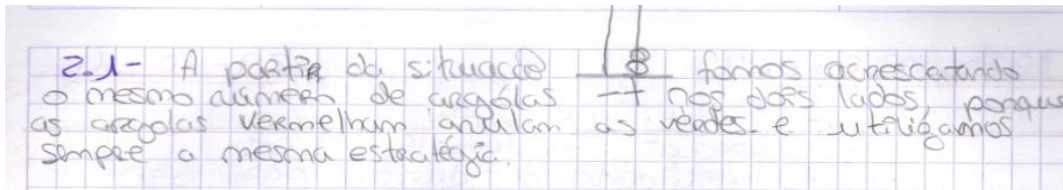 2.1- A partir da situação fomos acrescatando
o mesmo número de argolas -+ nos dois lados, porque
as argolas vermelham anulam as verdes e utiligamos
sempre a mesma estratégia.